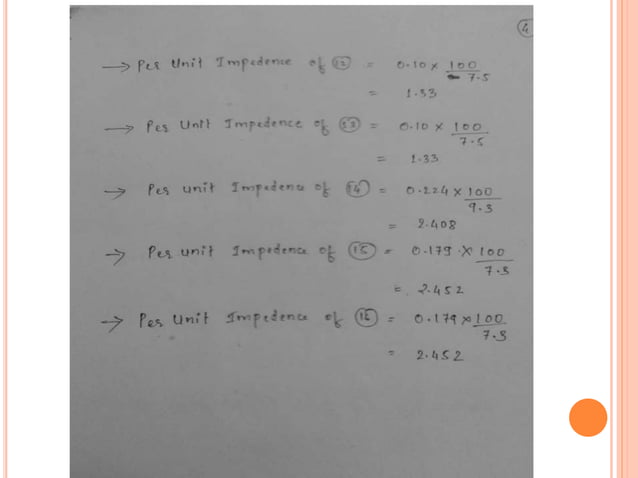 4
→ Per Unit Impedence of 12 = 0.10 × 100/7.5
= 1.33
→ Per Unit Impedence of 13 = 0.10 × 100/7.5
= 1.33
→ Per unit Impedence of 14 = 0.224 × 100/9.3
= 2.408
→ Per unit Impedence of 15 = 0.179 × 100/7.3
= 2.452
→ Per Unit Impedence of 16 = 0.179 × 100/7.3
= 2.452